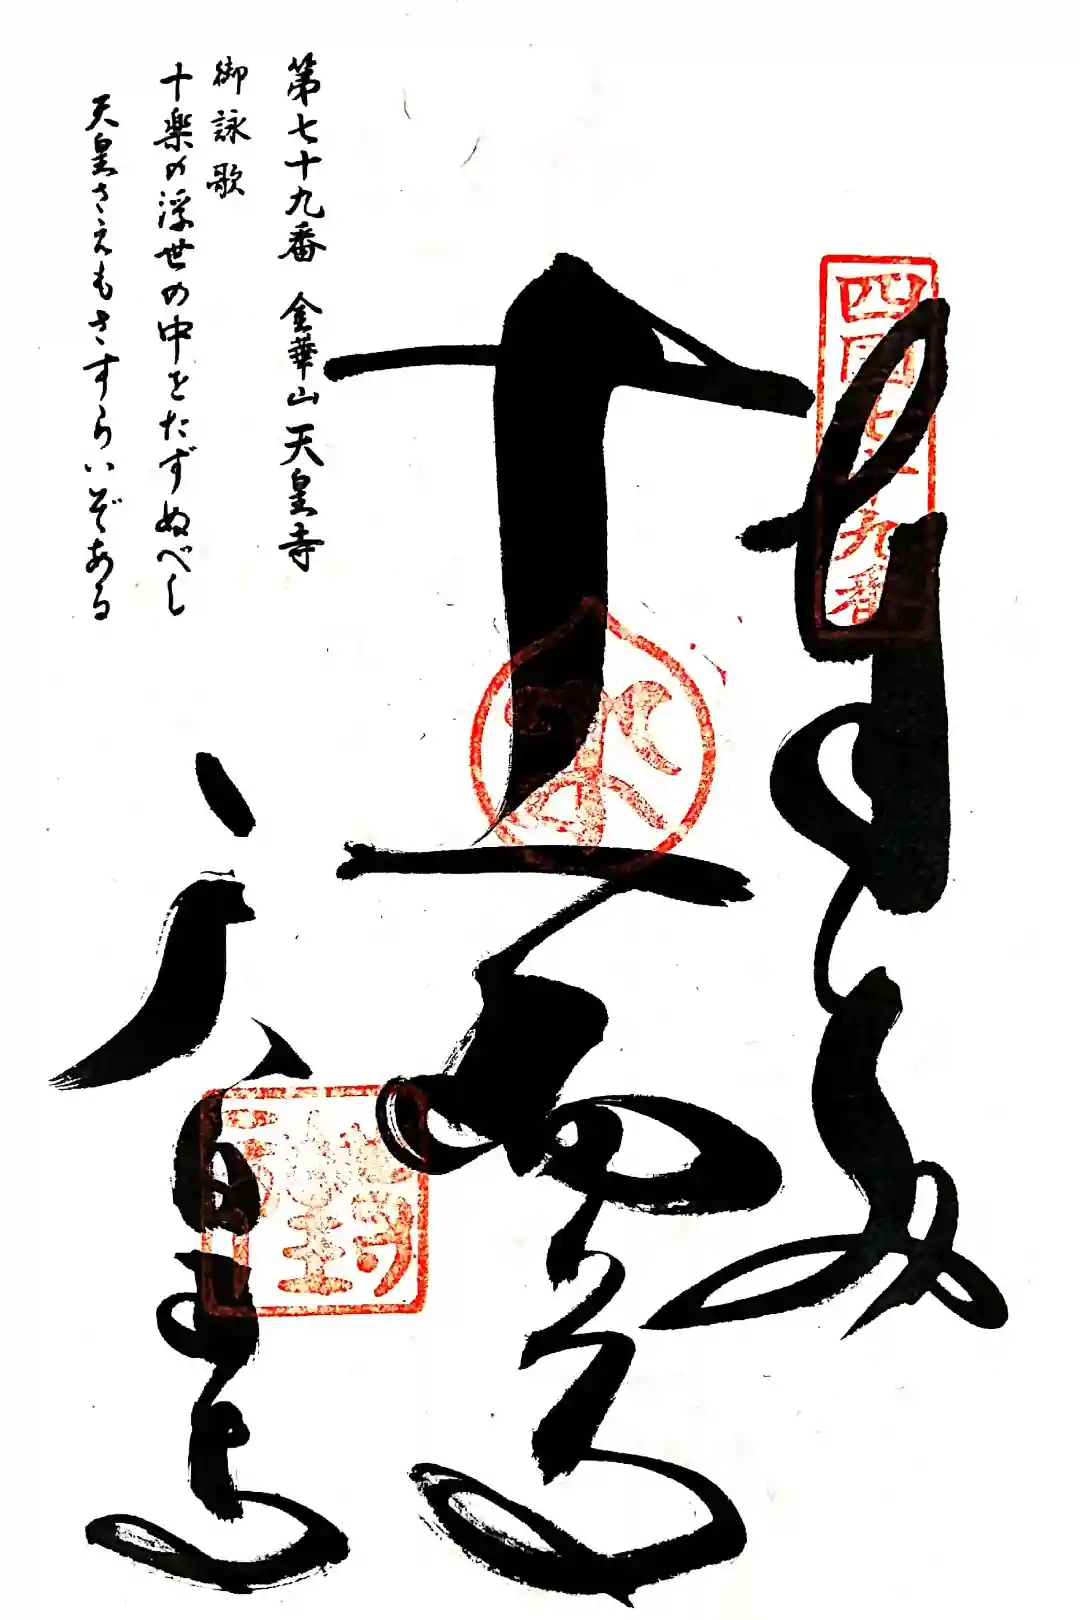 四国七十九番
奉納
十一面
天皇寺
第七十九番 金華山 天皇寺
御詠歌
十楽の浮世の中をたずぬべし
天皇さえもさすらいぞある